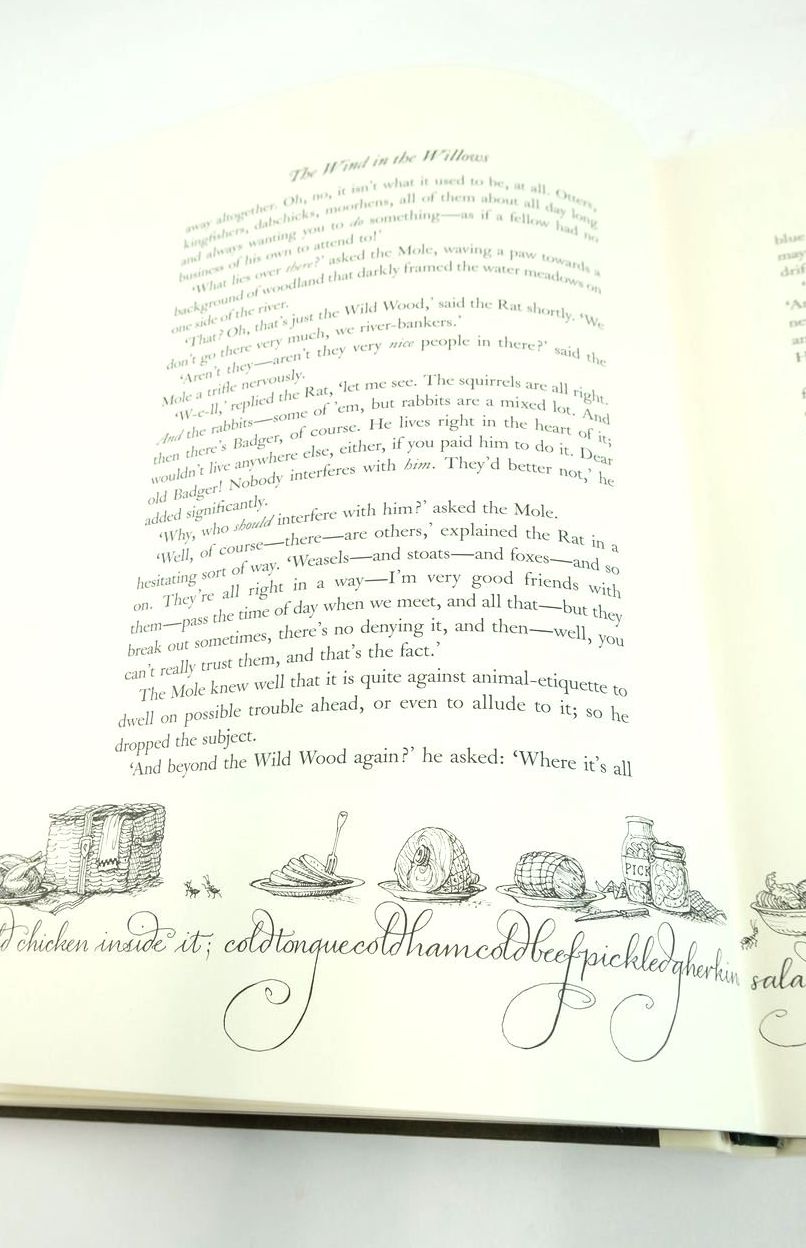 The Wind in the Willows
away altogether. Oh, no, it isn't what it used to be, at all. Otters,
kingfishers, dabchicks, moorhens, all of them about all day long
and always wanting you to do something—as if a fellow had no
business of his own to attend to!'
'What lies over there?' asked the Mole, waving a paw towards a
background of woodland that darkly framed the water meadows on
one side of the river.
'That? Oh, that's just the Wild Wood,' said the Rat shortly. 'We
don't go there very much, we river-bankers.'
'Aren't they—aren't they very nice people in there?' said the
Mole a trifle nervously.
'W-e-ll,' replied the Rat, 'let me see. The squirrels are all right.
And the rabbits—some of 'em, but rabbits are a mixed lot. And
then there's Badger, of course. He lives right in the heart of it;
wouldn't live anywhere else, either, if you paid him to do it. Dear
old Badger! Nobody interferes with him. They'd better not,' he
added significantly.
'Why, who should interfere with him?' asked the Mole.
'Well, of course—there—are others,' explained the Rat in a
hesitating sort of way. 'Weasels—and stoats—and foxes—and so
on. They're all right in a way—I'm very good friends with
them—pass the time of day when we meet, and all that—but they
break out sometimes, there's no denying it, and then—well, you
can't really trust them, and that's the fact.'
The Mole knew well that it is quite against animal-etiquette to
dwell on possible trouble ahead, or even to allude to it; so he
dropped the subject.
'And beyond the Wild Wood again?' he asked: 'Where it's all
PICK
d chicken inside it; coldtonguecoldhamcoldbeefpickledgherkin
blue
may
drif
sala